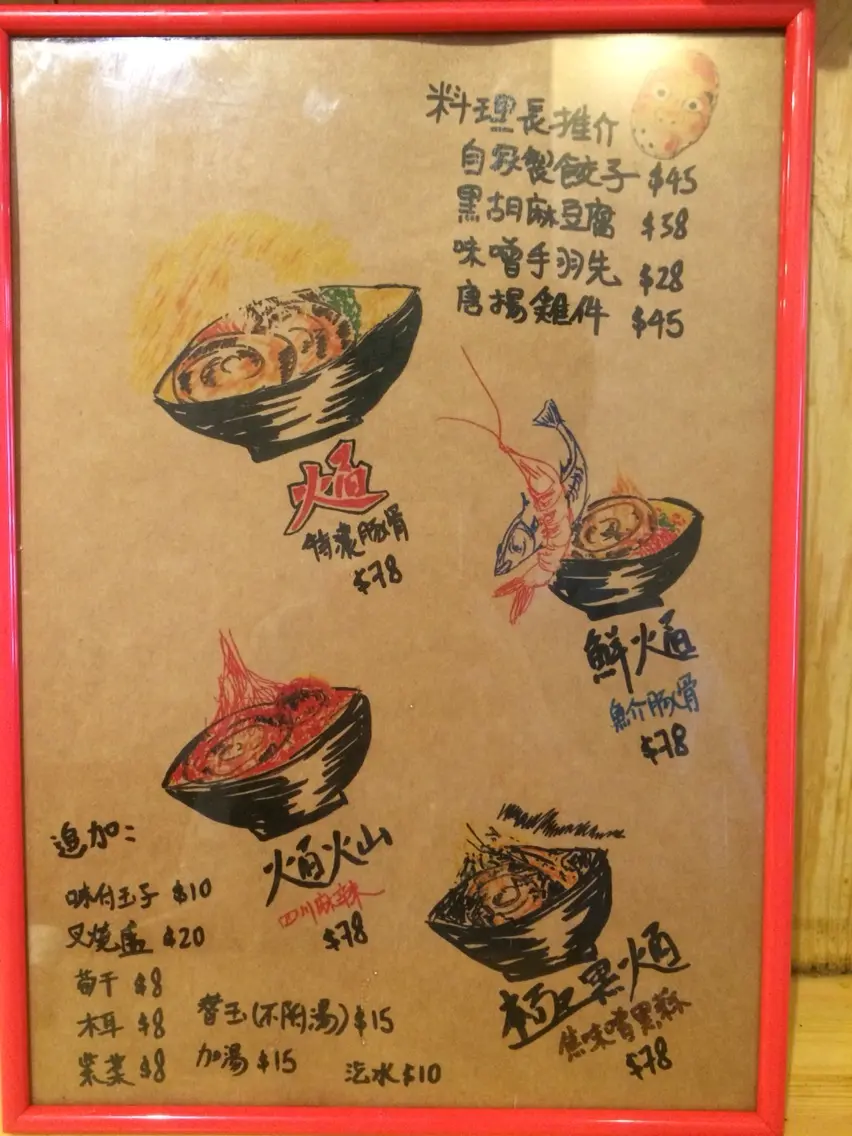 料理長推介
自家製餃子 $45
黒胡麻豆腐 $38
味噌手羽先 $28
唐揚雞件 $45
焔
特濃豚骨
$78
鮮焔
魚介豚骨
$78
焔火山
四川麻辣
$78
極黒焔
焦味噌黑蒜
$78
追加:
味付玉子 $10
叉燒盛 $20
荀干 $8
木耳 $8
紫菜 $8
替玉(不附湯) $15
加湯 $15
汽水 $10